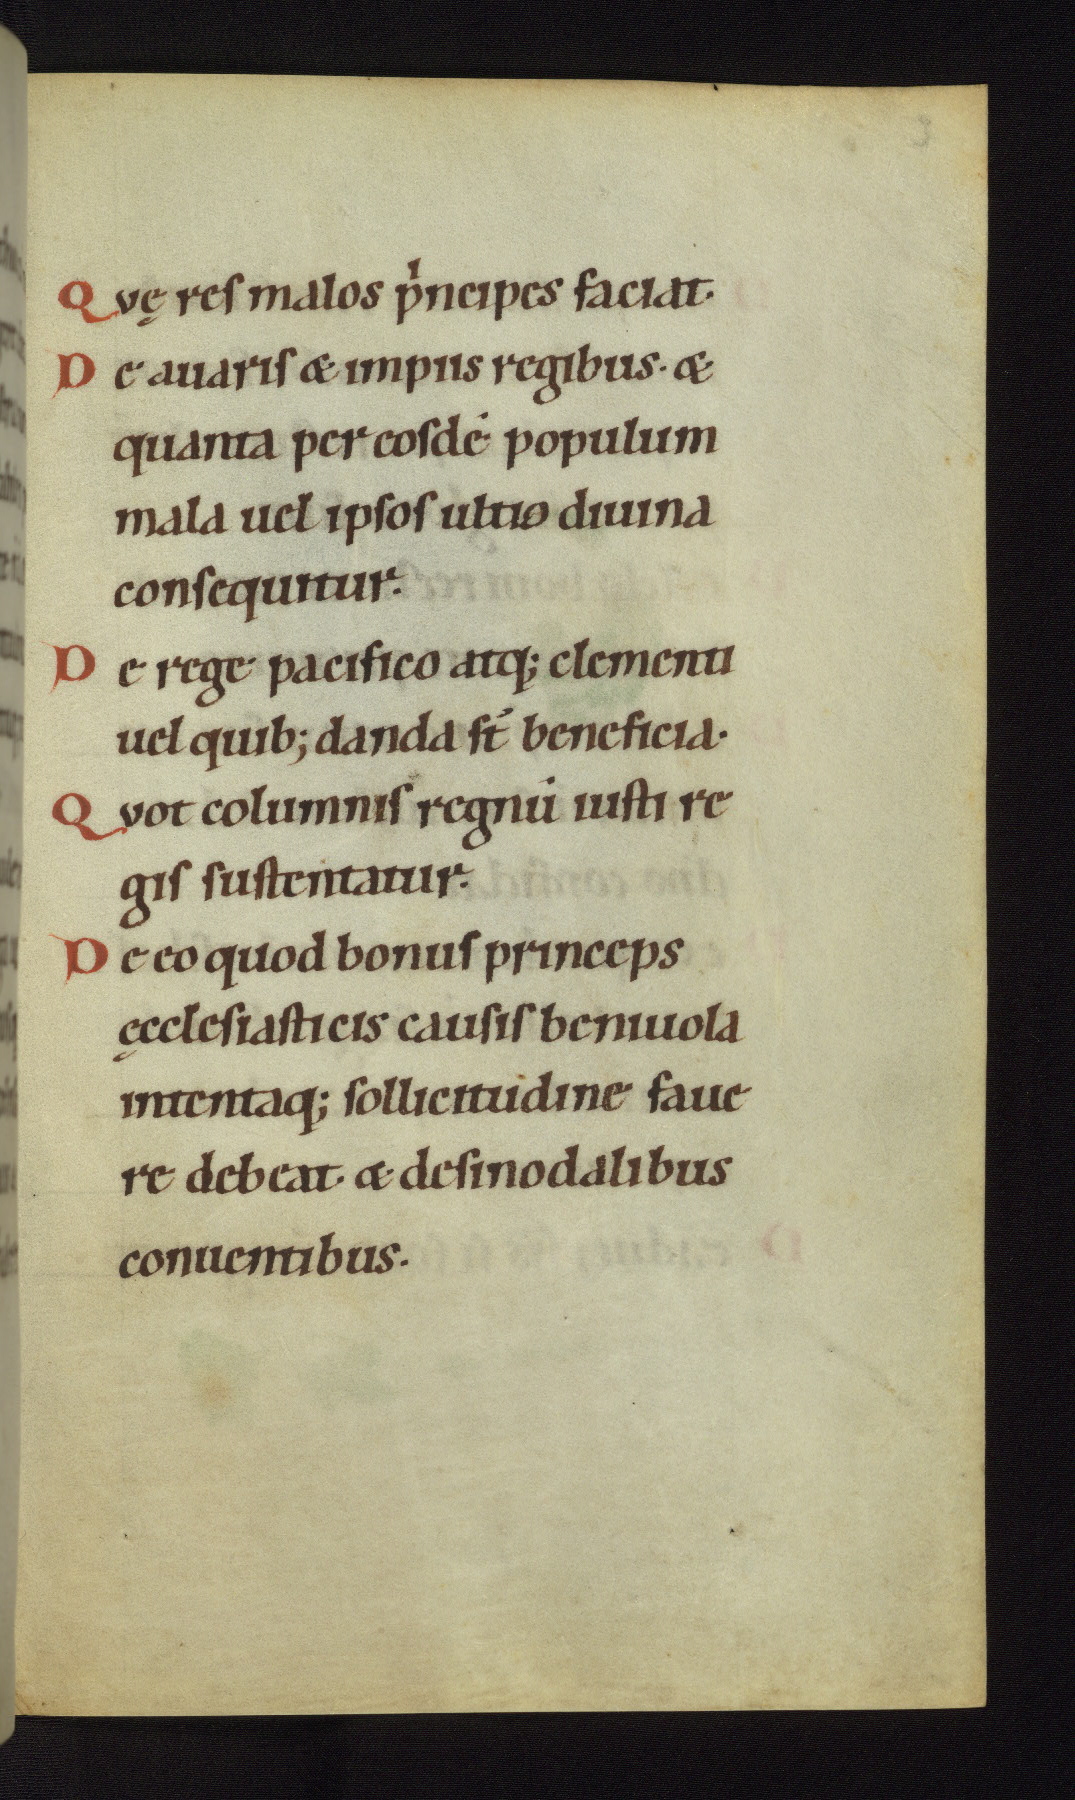 Qvę res malos pͥncipes faciat.
De auaris & impiis regibus. &
quanta per eosdē populum
mala uel ipsos ultio diuina
consequitur.
De rege pacifico atq; clementi
uel quib; danda st̄ beneficia.
Qvot columnis regnū iusti re
gis sustentatur.
De eo quod bonus princeps
ęcclesiasticis causis beniuola
intentaq; sollicitudine faue
re debeat. & de sinodalibus
conuentibus.